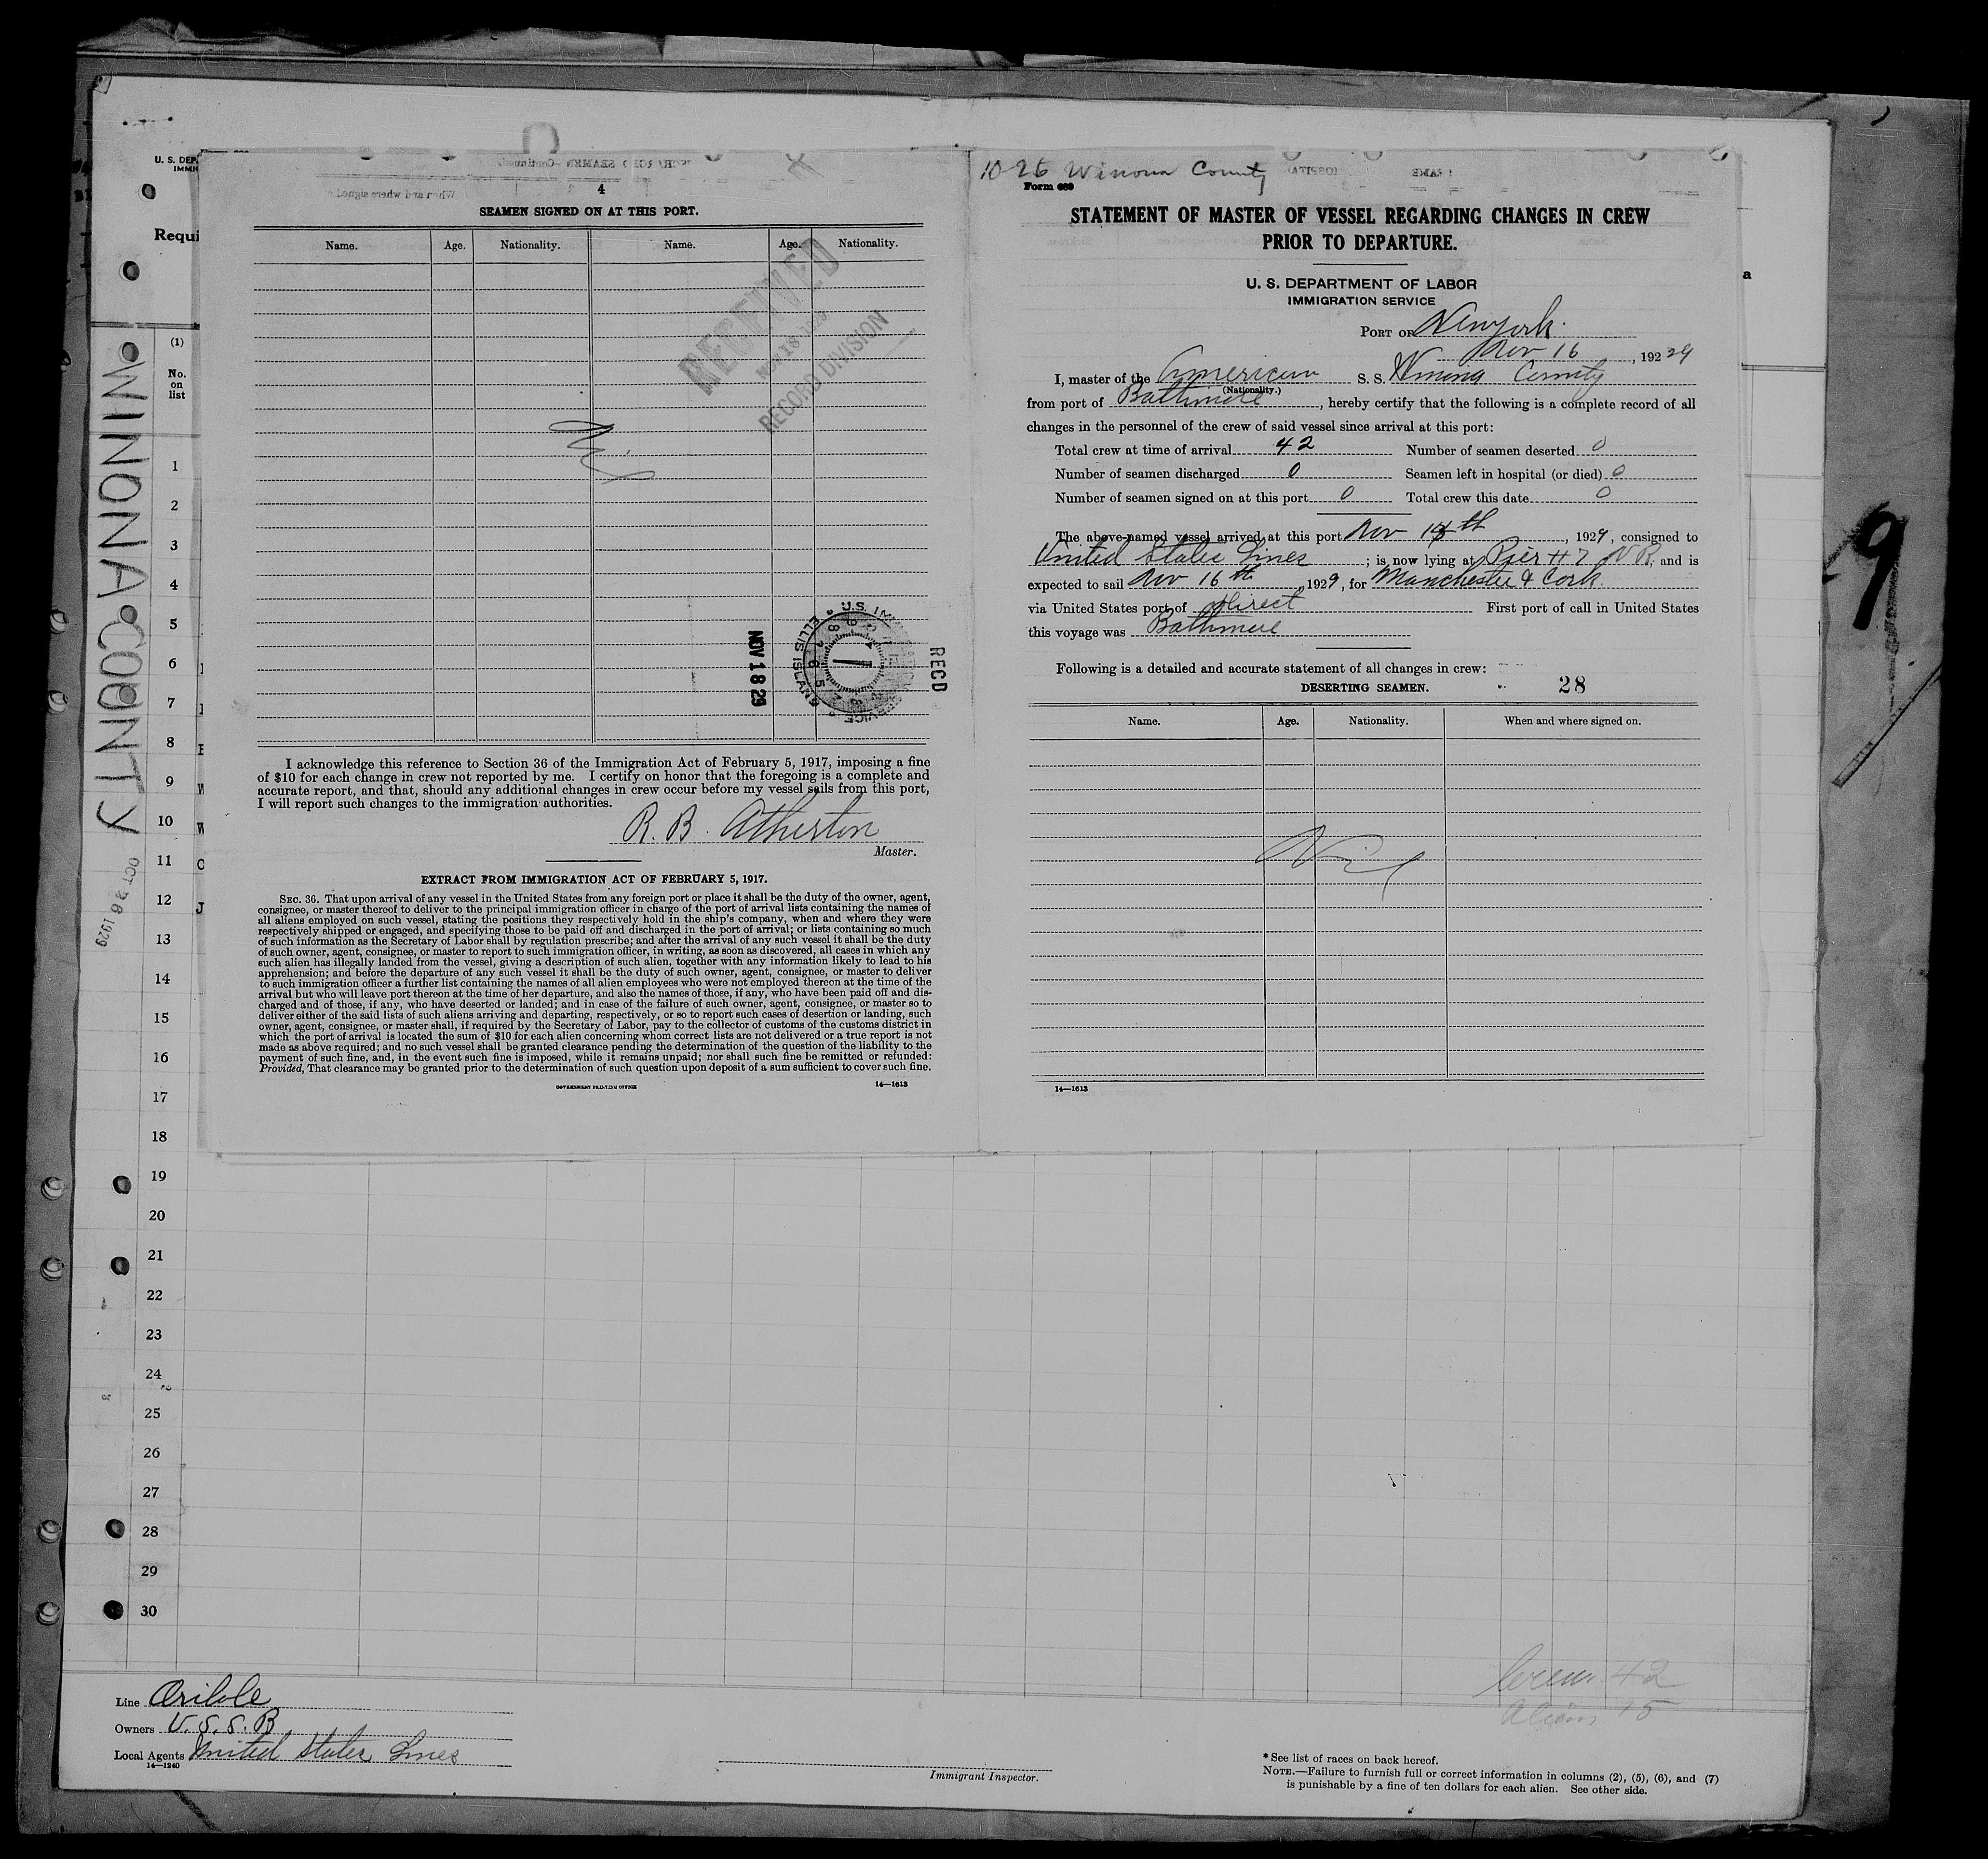 U. S. DEP
IMMI
Requi
(1)
No.
on
list
1
2
3
4
5
6
7
8
9
10
11
12
13
14
15
16
17
18
19
20
21
22
23
24
25
26
27
28
29
30
WINONA COUNTY
OCT 26 1929
4
SEAMEN SIGNED ON AT THIS PORT.
Name. Age. Nationality. Name. Age. Nationality.
RECEIVED
NOV 18 1929
RECORD DIVISION
Nil
NOV 18 29
U.S. IMMIGRATION SERVICE ELLIS ISLAND
RECD
I acknowledge this reference to Section 36 of the Immigration Act of February 5, 1917, imposing a fine
of $10 for each change in crew not reported by me. I certify on honor that the foregoing is a complete and
accurate report, and that, should any additional changes in crew occur before my vessel sails from this port,
I will report such changes to the immigration authorities.
R. B. Atherton
Master.
EXTRACT FROM IMMIGRATION ACT OF FEBRUARY 5, 1917.
SEC. 36. That upon arrival of any vessel in the United States from any foreign port or place it shall be the duty of the owner, agent,
consignee, or master thereof to deliver to the principal immigration officer in charge of the port of arrival lists containing the names of
all aliens employed on such vessel, stating the positions they respectively hold in the ship's company, when and where they were
respectively shipped or engaged, and specifying those to be paid off and discharged in the port of arrival; or lists containing so much
of such information as the Secretary of Labor shall by regulation prescribe; and after the arrival of any such vessel it shall be the duty
of such owner, agent, consignee, or master to report to such immigration officer, in writing, as soon as discovered, all cases in which any
such alien has illegally landed from the vessel, giving a description of such alien, together with any information likely to lead to his
apprehension; and before the departure of any such vessel it shall be the duty of such owner, agent, consignee, or master to deliver
to such immigration officer a further list containing the names of all alien employees who were not employed thereon at the time of the
arrival but who will leave port thereon at the time of her departure, and also the names of those, if any, who have been paid off and dis-
charged and of those, if any, who have deserted or landed; and in case of the failure of such owner, agent, consignee, or master so to
deliver either of the said lists of such aliens arriving and departing, respectively, or so to report such cases of desertion or landing, such
owner, agent, consignee, or master shall, if required by the Secretary of Labor, pay to the collector of customs of the customs district in
which the port of arrival is located the sum of $10 for each alien concerning whom correct lists are not delivered or a true report is not
made as above required; and no such vessel shall be granted clearance pending the determination of the question of the liability to the
payment of such fine, and, in the event such fine is imposed, while it remains unpaid; nor shall such fine be remitted or refunded:
Provided, That clearance may be granted prior to the determination of such question upon deposit of a sum sufficient to cover such fine.
GOVERNMENT PRINTING OFFICE 14—1613
10-26 Winona County
Form 689
STATEMENT OF MASTER OF VESSEL REGARDING CHANGES IN CREW
PRIOR TO DEPARTURE.
U. S. DEPARTMENT OF LABOR
IMMIGRATION SERVICE
PORT OF New York.
Nov 16, 192 29
I, master of the American S. S. Winona County
(Nationality.)
from port of Baltimore, hereby certify that the following is a complete record of all
changes in the personnel of the crew of said vessel since arrival at this port:
Total crew at time of arrival 42 Number of seamen deserted 0
Number of seamen discharged 0 Seamen left in hospital (or died) 0
Number of seamen signed on at this port 0 Total crew this date 0
The above-named vessel arrived at this port Nov th, 1929, consigned to
United States Lines; is now lying at Pier #7 N R, and is
expected to sail Nov 16 th, 1929, for Manchester & Cork.
via United States port of direct First port of call in United States
this voyage was Baltimore
Following is a detailed and accurate statement of all changes in crew:
DESERTING SEAMEN. 28
Name. Age. Nationality. When and where signed on.
Nil
14—1613
9
Line Oriole
Owners U. S. S. B
Local Agents United States Lines
14—1240
Immigrant Inspector.
Crew 42
Aliens 15
* See list of races on back hereof.
NOTE.—Failure to furnish full or correct information in columns (2), (5), (6), and (7)
is punishable by a fine of ten dollars for each alien. See other side.